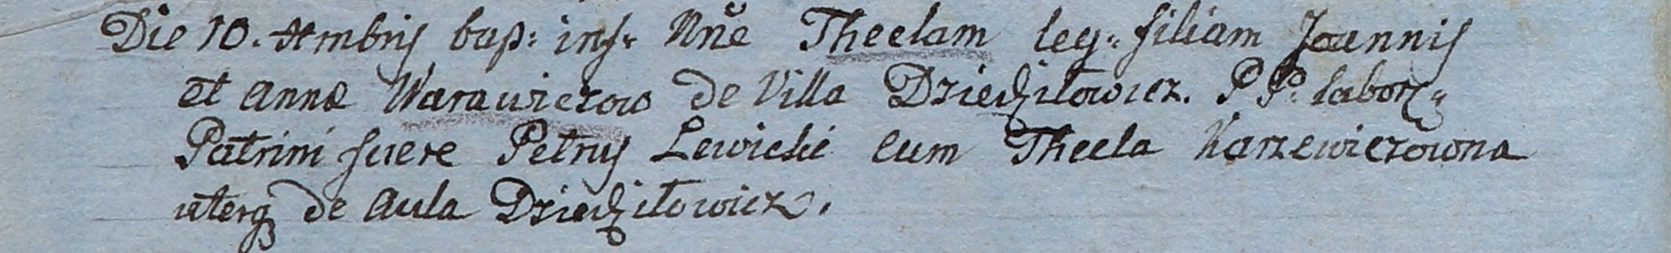 Die 10. Xmbris bap: inf: Nñe Theclam leg: filiam Joannis
et Annæ Warawiczow de Villa Dziedziłowicz. PP: labor:
Patrini fuere Petrus Lewicki cum Thecla Karzewiczowna
uterq de Aula Dziedziłowicz.